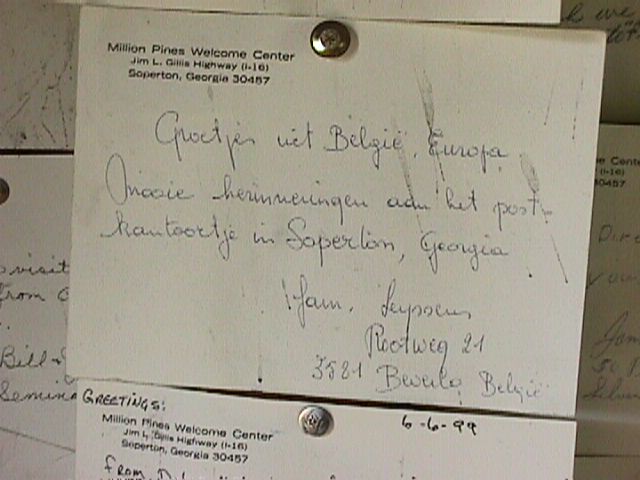 Million Pines Welcome Center
Jim L. Gillis Highway (I-16)
Soperton, Georgia 30457
Groetjes uit België, Europa
Mooie herinneringen aan het post-
kantoortje in Soperton, Georgia
Fam. Leyssens
Rootweg 21
3581 Beverlo, België
visit
from
Bill &
Semin
we
e Center
(I-16)
30457
GREETINGS:
6-6-99
Million Pines Welcome Center
Jim L. Gillis Highway (I-16)
Soperton, Georgia 30457
from